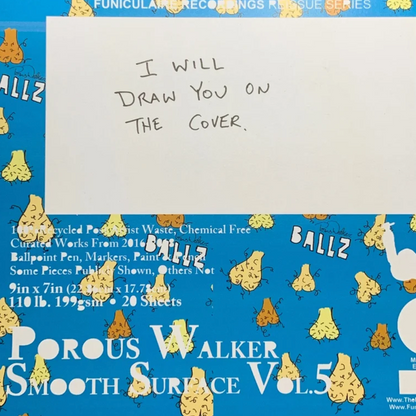 FUNICULAIRE RECORDINGS REISSUE SERIES
I WILL
DRAW YOU ON
THE COVER.
BALLZ
BALLZ
BALLZ
100% Recycled Post Artist Waste, Chemical Free
Curated Works From 2016
Ballpoint Pen, Markers, Paint & Pencil
Some Pieces Publicly Shown, Others Not
9in x 7in (22.86cm x 17.78cm)
110 lb. 199gsm • 20 Sheets
POROUS WALKER
SMOOTH SURFACE VOL.5
www.The
www.Funiculaire